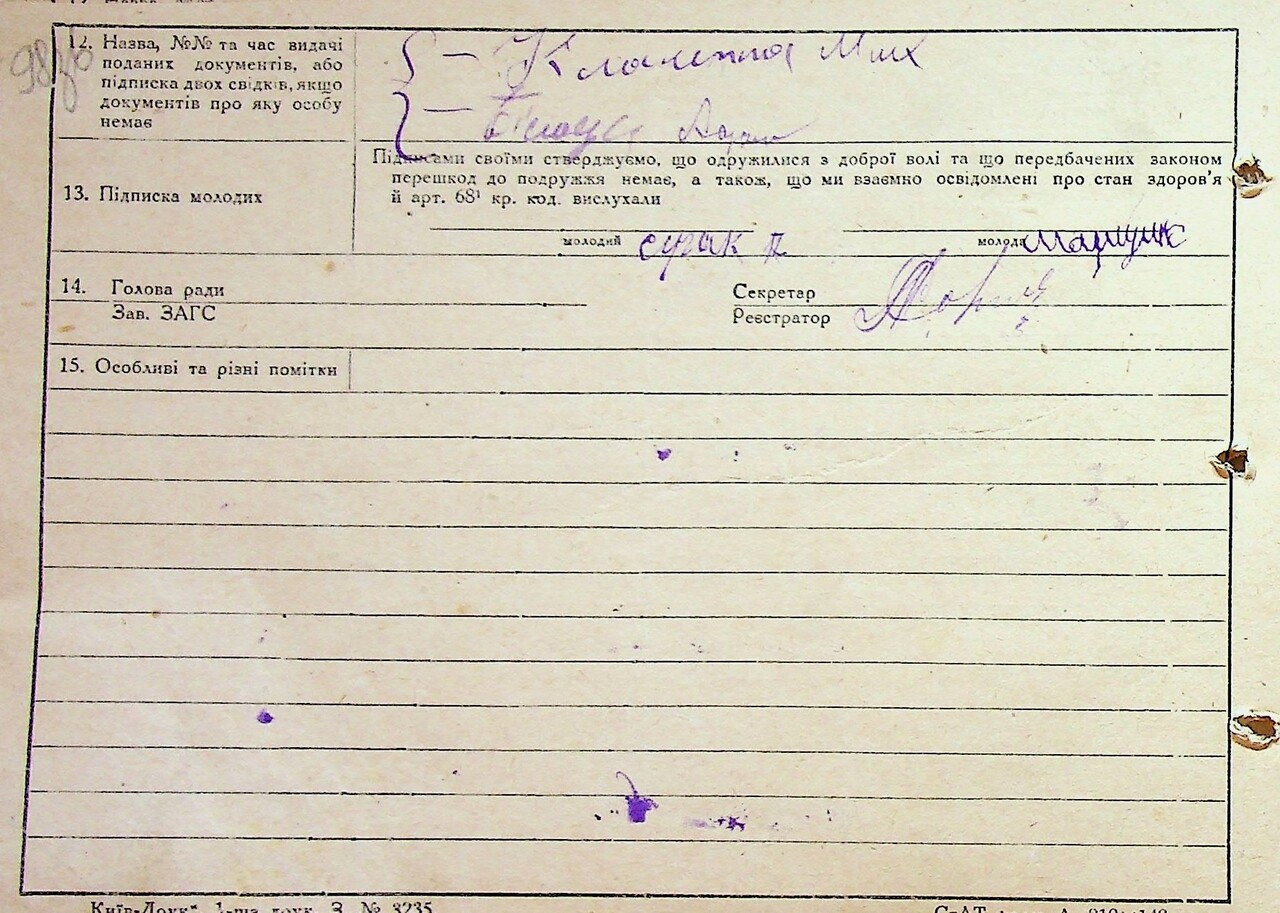 98зв
12. Назва, №№ та час видачі
поданих документів, або
підписка двох свідків, якщо
документів про яку особу
немає
Мих
13. Підписка молодих
Підписами своїми стверджуємо, що одружилися з доброї волі та що передбачених законом
перешкод до подружжя немає, а також, що ми взаємно освідомлені про стан здоров'я
й арт. 68¹ кр. код. вислухали
молодий
молода
14. Голова ради
Зав. ЗАГС
Секретар
Реєстратор
15. Особливі та різні помітки
Київ-Друк", 1-ша друк. З. № 3235